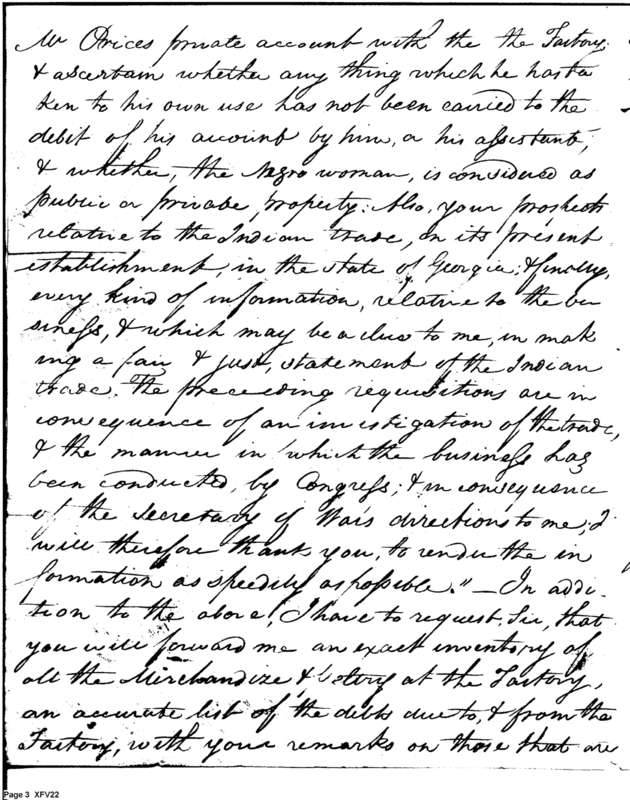 Mr Prices private account with the the Factory
& ascertain whether any thing which he has ta
ken to his own use has not been carried to the
debit of his account by him, or his assistants,
& whether, the Negro woman, is considered as
public or private property. Also, your prospects
relative to the Indian trade, on its present
establishment, in the state of Georgia; & finally,
every kind of information, relative to the bu
siness, & which may be a clue to me, in mak
ing a fair & just, statement of the Indian
trade. The preceeding requisitions are in
consequence of an investigation of the trade,
& the manner in which the business has
been conducted, by Congress; & in consequence
of the Secretary of Wars directions to me; I
will therefore thank you, to render the in
formation as speedily as possible." – In addi
tion to the above, I have to request, Sir, that
you will forward me an exact inventory of
all the Merchandize, & at the Factory,
an accurate list of the debts due to, & from the
Factory, with your remarks on those that are
Page 3 XFV22